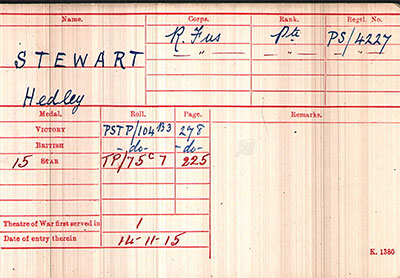 Name. Corps. Rank. Regtl. No.
STEWART R. Fus Pte PS/4227
Hedley — " — — " — — " —
Medal. Roll. Page. Remarks.
VICTORY PSTP/104 B3 278
BRITISH -do- -do-
15 STAR TP/75 C 7 225
Theatre of War first served in 1
Date of entry therein 14-11-15
K. 1380